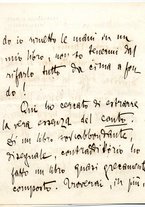 do io rimetto le mani in un
mio libro, non so tenermi dal
rifarlo tutto da cima a fon
do!
Qui ho cercato di estrarre
la vera essenza del canto.
Di un libro sovrabbondante,
diseguale, contraddittorio ho
fatto un libro, quasi grecamente
composto. Troverai, in più,